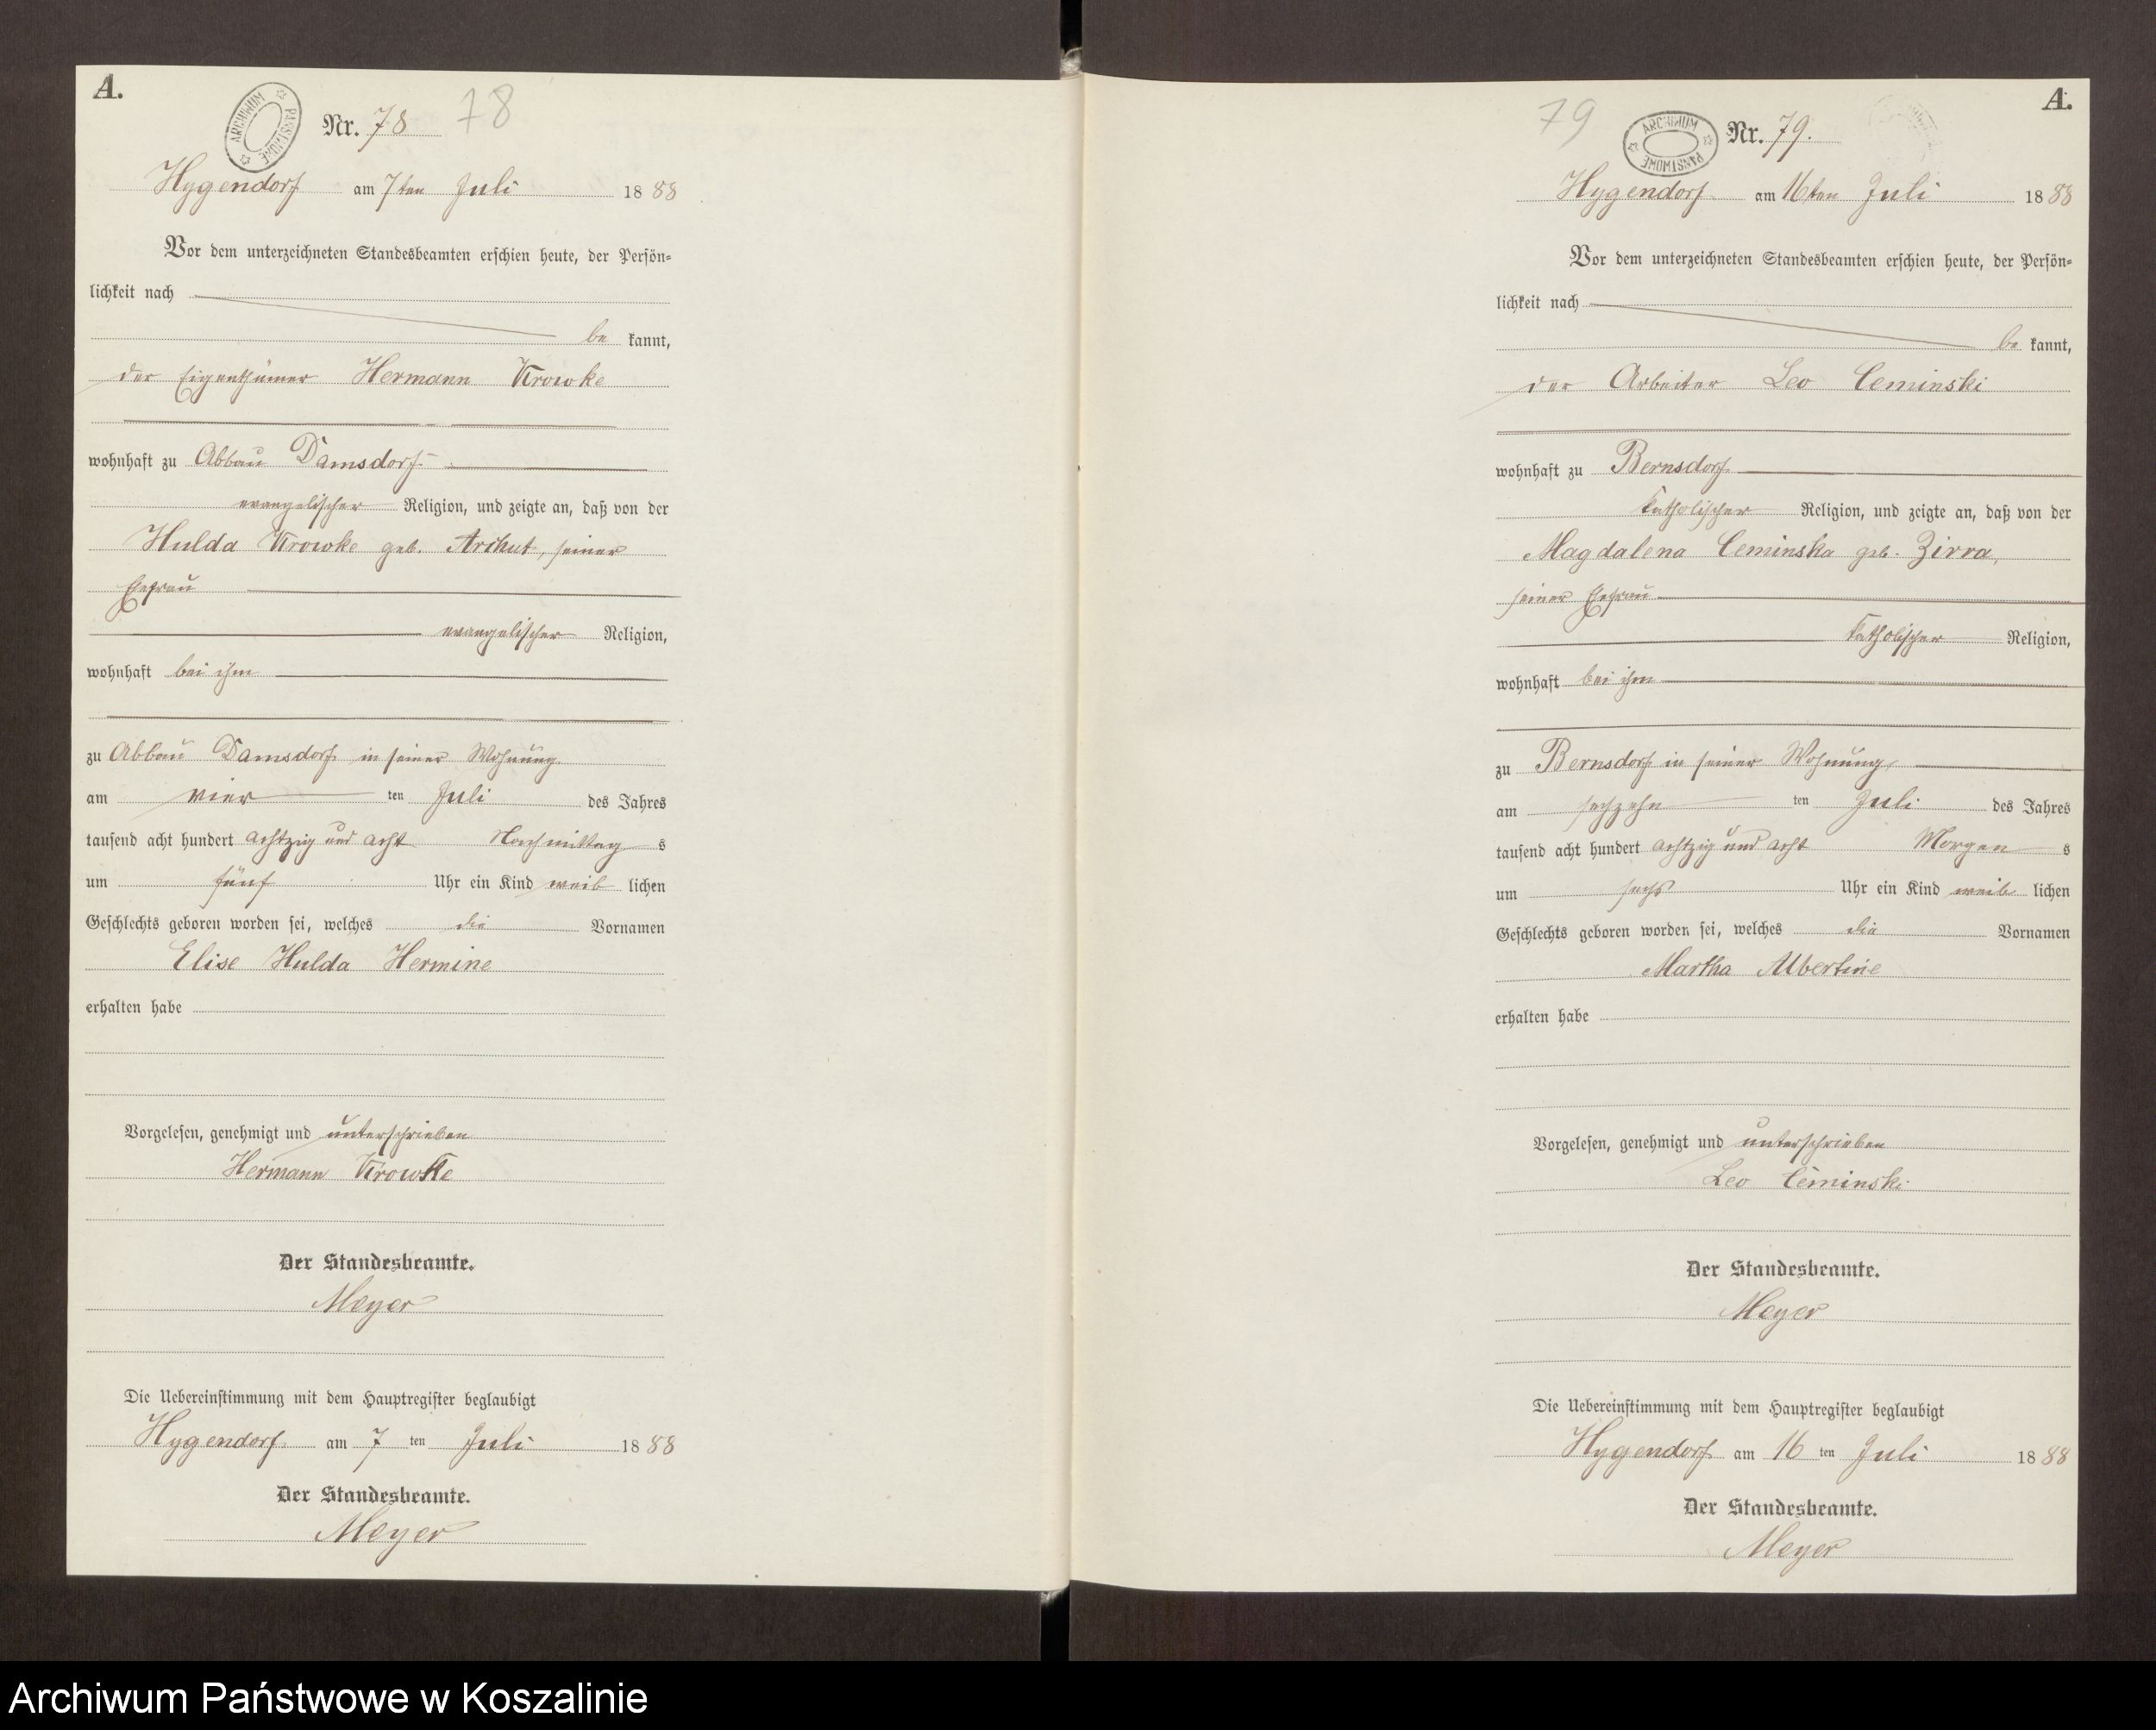 A.
ARCHIWUM PAŃSTWOWE
Nr. 78 78
Hygendorf am 7ten Juli 1888
Vor dem unterzeichneten Standesbeamten erschien heute, der Persön=
lichkeit nach
be kannt,
der Eigenthümer Hermann Krowke
wohnhaft zu Abbau Damsdorf
evangelischer Religion, und zeigte an, daß von der
Hulda Krowke geb. Arikut, seiner
Ehefrau
evangelischer Religion,
wohnhaft bei ihm
zu Abbau Damsdorf in seiner Wohnung
am vier ten Juli des Jahres
tausend acht hundert achtzig und acht Nachmittag s
um fünf Uhr ein Kind weib lichen
Geschlechts geboren worden sei, welches die Vornamen
Elise Hulda Hermine
erhalten habe
Vorgelesen, genehmigt und unterschrieben
Hermann Krowke
Der Standesbeamte.
Meyer
Die Uebereinstimmung mit dem Hauptregister beglaubigt
Hygendorf am 7 ten Juli 1888
Der Standesbeamte.
Meyer
A.
79
ARCHIWUM PAŃSTWOWE
Nr. 79.
Hygendorf am 16ten Juli 1888
Vor dem unterzeichneten Standesbeamten erschien heute, der Persön=
lichkeit nach
be kannt,
der Arbeiter Leo Ceminski
wohnhaft zu Bernsdorf
katholischer Religion, und zeigte an, daß von der
Magdalena Ceminska geb. Zirra,
seiner Ehefrau
katholischer Religion,
wohnhaft bei ihm
zu Bernsdorf in seiner Wohnung,
am sechzehn ten Juli des Jahres
tausend acht hundert achtzig und acht Morgen s
um sechs Uhr ein Kind weib lichen
Geschlechts geboren worden sei, welches die Vornamen
Martha Albertine
erhalten habe
Vorgelesen, genehmigt und unterschrieben
Leo Ceminski
Der Standesbeamte.
Meyer
Die Uebereinstimmung mit dem Hauptregister beglaubigt
Hygendorf am 16 ten Juli 1888
Der Standesbeamte.
Meyer
Archiwum Państwowe w Koszalinie